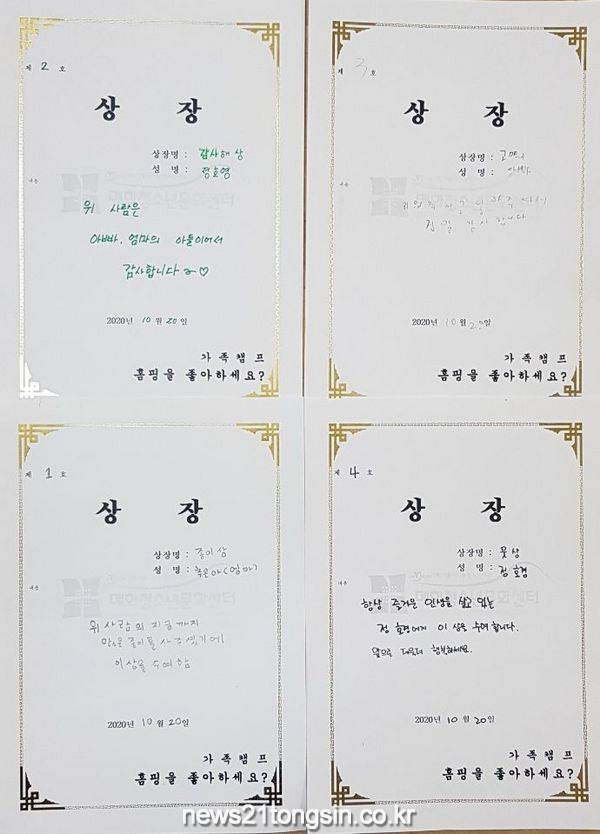 제 2 호
상 장
상장명 : 감사해상
성 명 : 정호영
위 사람은
아빠, 엄마의 아들이어서
감사합니다~♡
2020년 10월 20일
가족캠프
홈핑을 좋아하세요?
제 3 호
상 장
상장명 :
성 명 : 아빠
감사합니다
2020년 10월 20일
가족캠프
홈핑을 좋아하세요?
제 1 호
상 장
상장명 : 종이상
성 명 : (엄마)
위 사람의 지금까지
이상을 수여함
2020년 10월 20일
가족캠프
홈핑을 좋아하세요?
제 4 호
상 장
상장명 : 웃상
성 명 : 정호경
항상 즐거운 인생을 살고 있는
정호경에게 이 상을 수여합니다.
앞으로 더욱더 행복하세요.
2020년 10월 20일
가족캠프
홈핑을 좋아하세요?
news21tongsin.co.kr